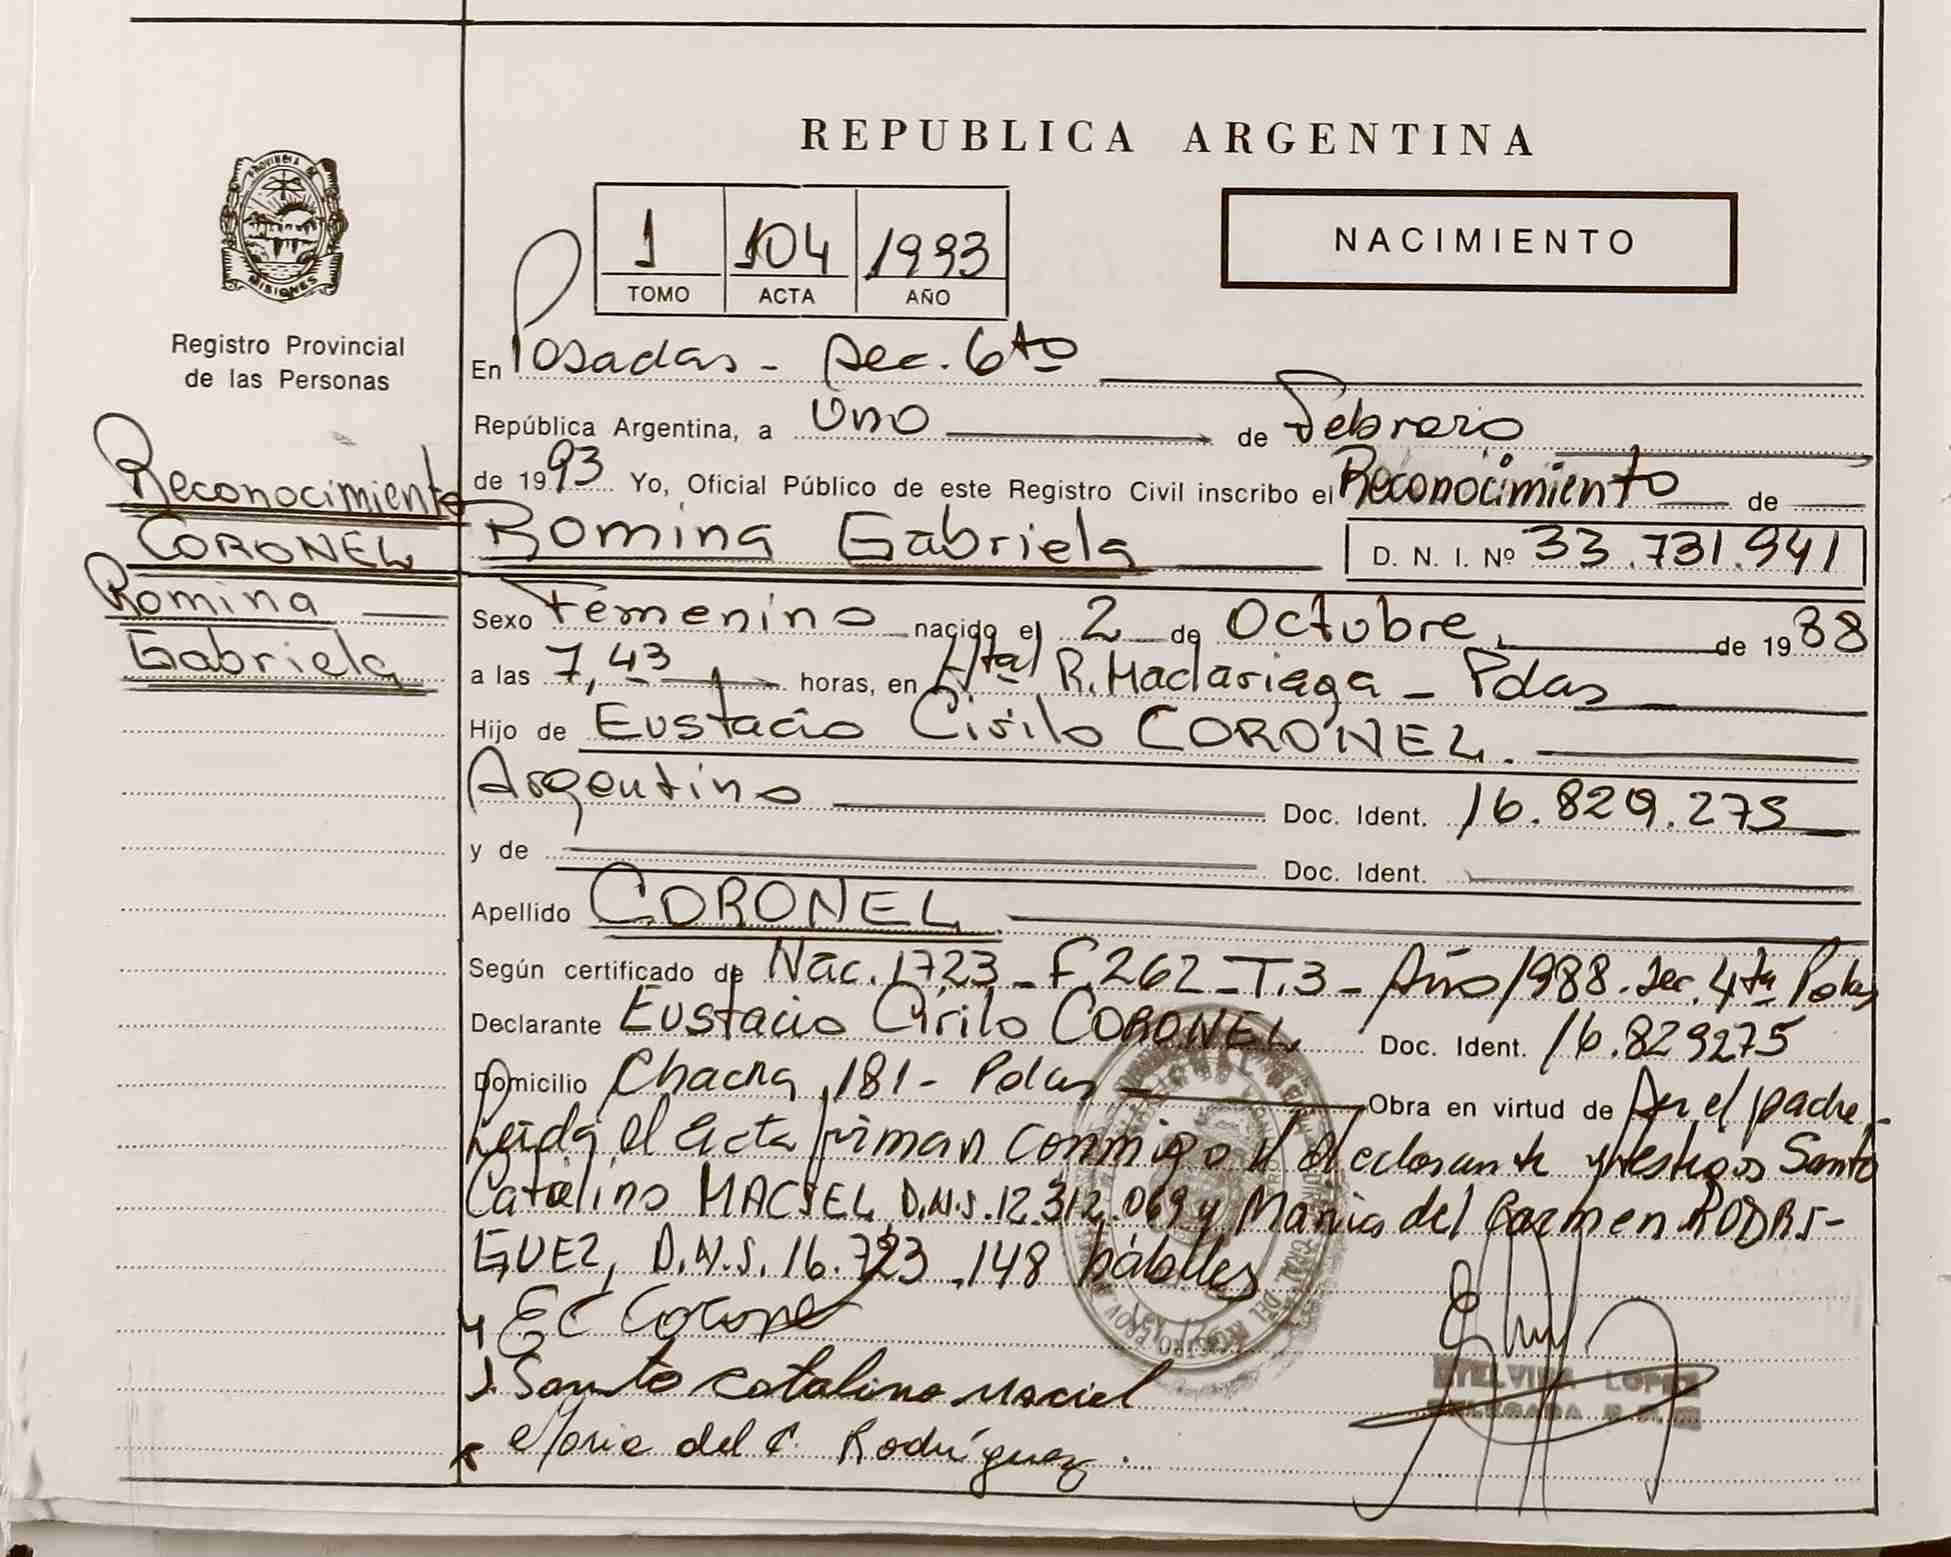 REPUBLICA ARGENTINA
PROVINCIA DE
MISIONES
1 104 1993
TOMO ACTA AÑO
NACIMIENTO
Registro Provincial
de las Personas
Reconocimiento
CORONEL
Romina
Gabriela
En Posadas - Sec. 6to
República Argentina, a Uno de Febrero
de 1993 Yo, Oficial Público de este Registro Civil inscribo el Reconocimiento de
Romina Gabriela D. N. I. Nº 33.731.941
Sexo Femenino nacido el 2 de Octubre de 1988
a las 7,43 horas, en Htal R. Madariaga - Pdas
Hijo de Eustacio Cirilo CORONEL.
Argentino Doc. Ident. 16.829.275
y de Doc. Ident.
Apellido CORONEL
Según certificado de Nac. 1723 - F. 262 - T. 3 - Año 1988. Sec. 4ta Pdas
Declarante Eustacio Cirilo CORONEL Doc. Ident. 16.829275
Domicilio Chacra 181 - Pdas Obra en virtud de Ser el padre
Leida el acta firman conmigo el declarante y testigos Santo
Catalino MACIEL D.N.I. 12.312.069 y Maria del Carmen RODRI-
GUEZ, D.N.I. 16.723.148 hábiles
E C Coronel
Santo Catalino Maciel
Maria del C. Rodríguez.
ETELVINA LOPEZ
DELEGADA